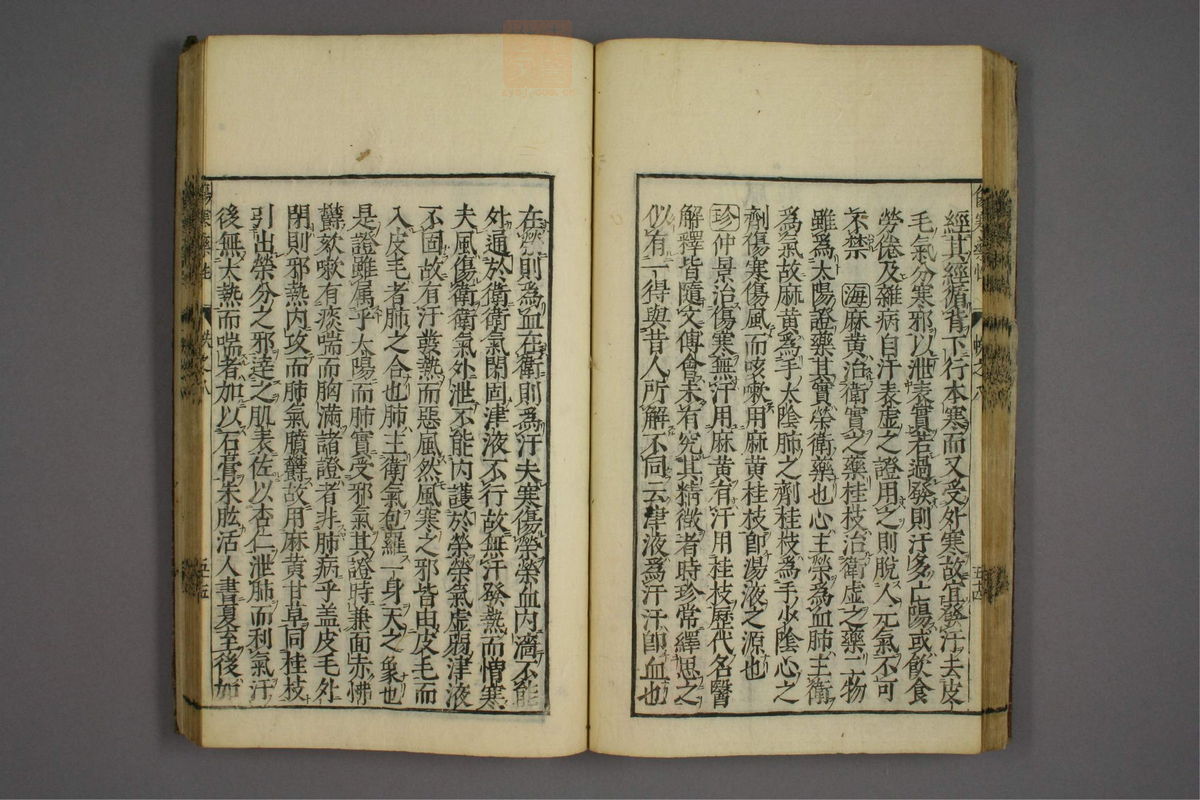 經其經循背下行本寒而又受外寒故宜發汗夫皮
毛氣分寒邪以泄表實若過發則汗多亡陽或飲食
勞倦及雜病自汗表虛之證用之則脫人元氣不可
不禁 海麻黃治衛實之藥桂枝治衛虛之藥二物
雖爲太陽證藥其實榮衛藥也心主榮爲血肺主衛
爲氣故麻黃爲手太陰肺之劑桂枝爲手少陰心之
劑傷寒傷風而咳嗽用麻黃桂枝卽湯液之源也
珍仲景治傷寒無汗用麻黃有汗用桂枝歷代名醫
解釋皆隨文傅會未有究其精微者時珍常繹思之
似有一得與昔人所解不同云津液爲汗汗卽血也
在榮則爲血在衛則爲汗夫寒傷榮榮血内濇不能
外通於衛衛氣閉固津液不行故無汗發熱而憎寒
夫風傷衛衛氣外泄不能内護於榮榮氣虛弱津液
不固故有汗發熱而惡風然風寒之邪皆由皮毛而
入皮毛者肺之合也肺主衛氣包羅一身天之象也
是證雖属乎太陽而肺實受邪氣其證時兼面赤怫
欝欬嗽有痰喘而胸滿諸證者非肺病乎盖皮毛外
閉則邪熱内攻而肺氣膹欝故用麻黃甘草同桂枝
引出榮分之邪達之肌表佐以杏仁泄肺而利氣汗
後無大熱而喘者加以石膏朱肱活人書夏至後加
五十四
傷寒藥性
五十五